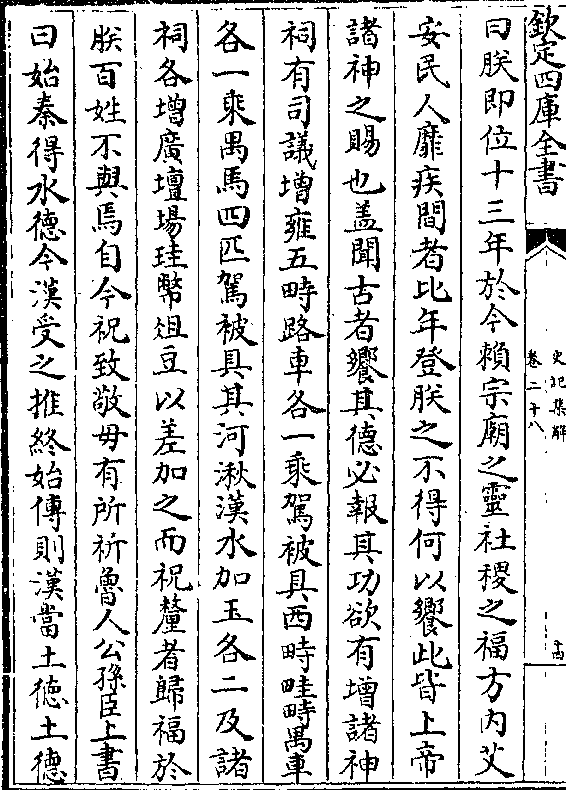 欽定四庫全書
史記集解
卷二十八
十四
曰朕即位十三年於今賴宗廟之靈社稷之福方内艾
安民人靡疾間者比年登朕之不得何以饗此皆上帝
諸神之賜也盖聞古者饗其德必報其功欲有增諸神
祠有司議增雍五畤路車各一乘駕被具西畤畦畤禺車
各一乘禺馬四匹駕被具其河湫漢水加玉各二及諸
祠各增廣壇場珪幣俎豆以差加之而祝釐者歸福於
朕百姓不與焉自今祝致敬毋有所祈魯人公孫臣上書
曰始秦得水德今漢受之推終始傳則漢當土德土德